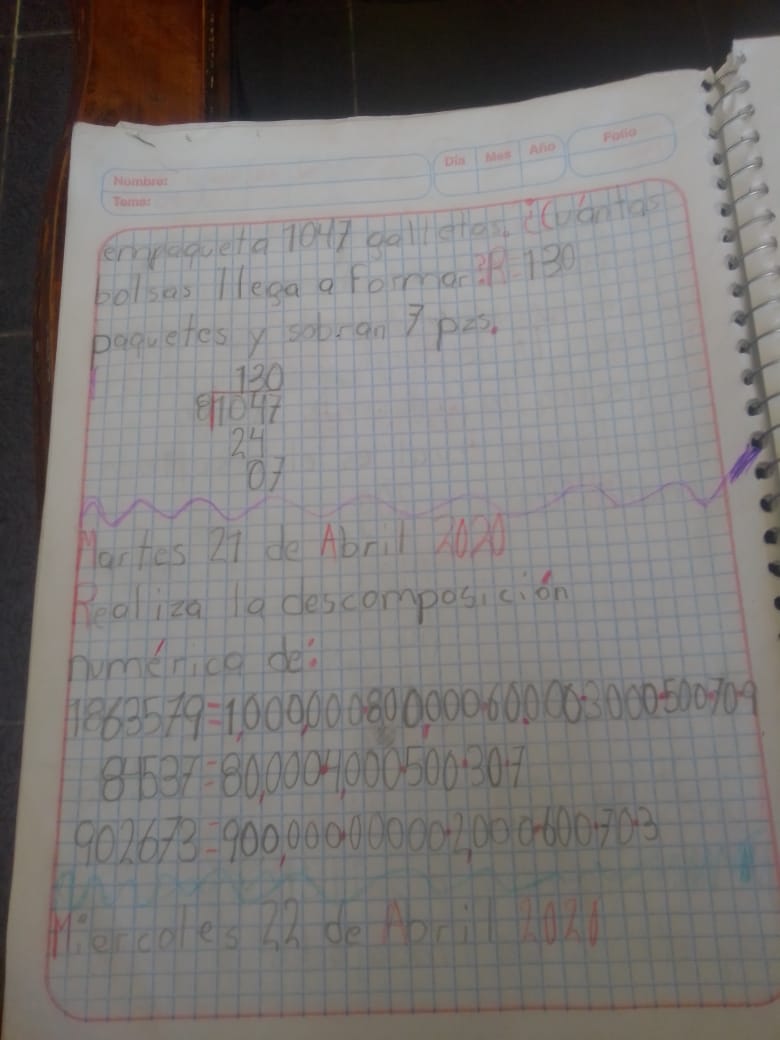 Nombre:
Tema:
Día Mes Año
Folio
empaqueta 1047 galletas. ¿Cuántas
bolsas llega a formar? R=130
paquetes y sobran 7 pzs.
130
8 1047
24
07
Martes 21 de Abril 2020
Realiza la descomposición
numérica de:
1863579=1,000,000·800,000·60,000·3000·500·70·9
84537=80,000·4,000·500·30·7
902673=900,000·00000·2,000·600·70·3
Miércoles 22 de Abril 2020